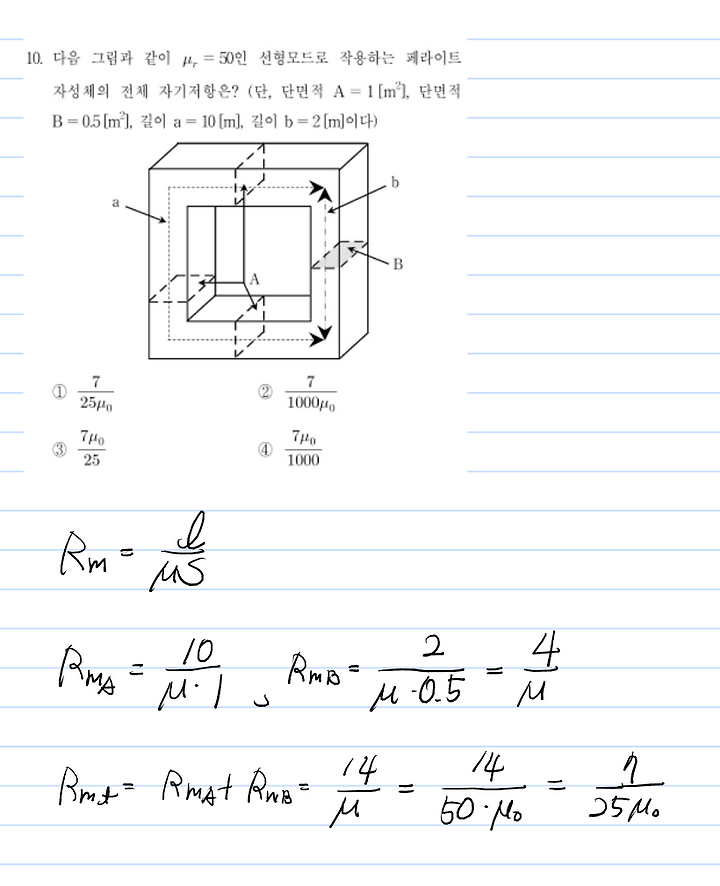 10. 다음 그림과 같이 μr = 50인 선형모드로 작용하는 페라이트
자성체의 전체 자기저항은? (단, 단면적 A = 1 [m²], 단면적
B = 0.5 [m²], 길이 a = 10 [m], 길이 b = 2 [m]이다)
a
b
A
B
① 7/25μ₀ ② 7/1000μ₀
③ 7μ₀/25 ④ 7μ₀/1000
Rm = l/μS
RmA = 10/μ·1 , RmB = 2/μ·0.5 = 4/μ
Rmt = RmA + RmB = 14/μ = 14/50·μ₀ = 7/25μ₀